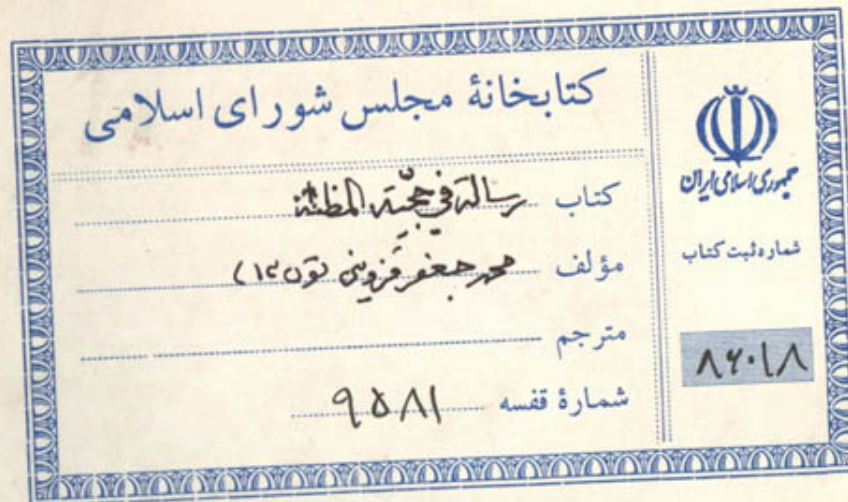 کتابخانهٔ مجلس شورای اسلامی
کتاب رسالة في حجّیّة المظنّة
مؤلف محمد جعفر قزوینی (قرن ۱۳)
مترجم
شمارهٔ قفسه ۹۵۸۱
جمهوری اسلامی ایران
شماره ثبت کتاب
۸۶۰۱۸